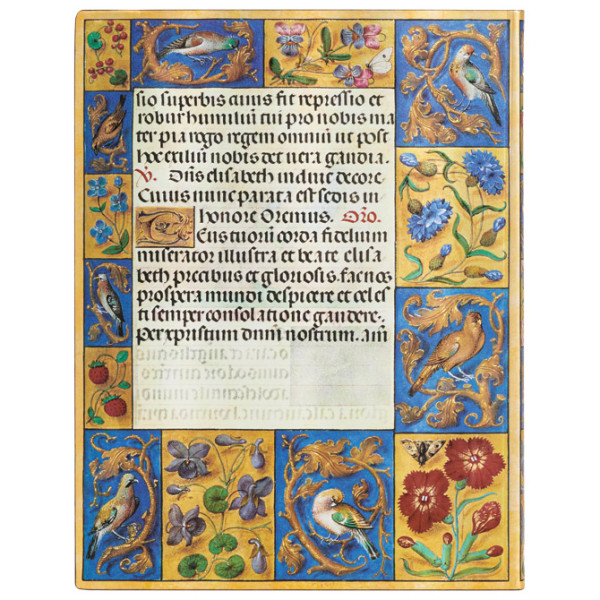 sio superbis cuius fit repressio et
robur humiliũ tui pro nobis ma
ter pia rogo regem omniũ ut post
hoc exiliũ nobis det vera gaudia.
V. Dñs elisabeth induit decore
Cuius nunc parata est sedis in
honore Oremus. Oro.
Deus tuorũ corda fidelium
miserator illustra et beate elisa
beth precibus et gloriosis. fac nos
prospera mundi despicere et celes
ti semper consolatione gaudere.
Per xpristum dñm nostrum. am̃